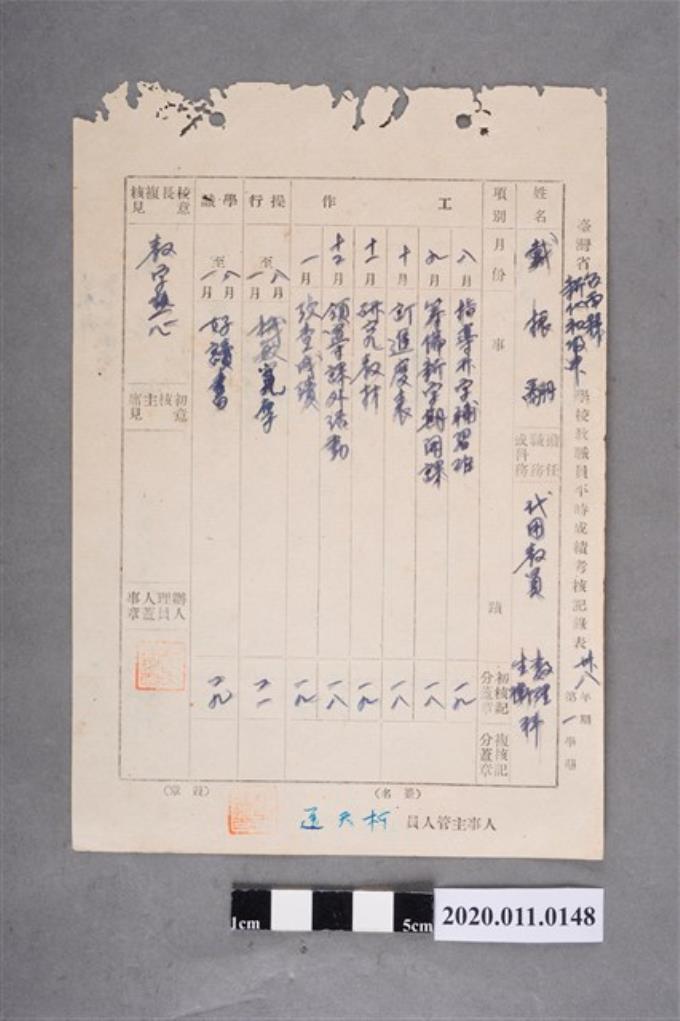 臺灣省台南縣新化初級中學校教職員平時成績考核記錄表 卅八年第一學期
姓名 戴振翮 擔任職務或科務 代用教員 數理科 生衛
項別 月份 事蹟 初核記分蓋章 複核記分蓋章
工作
八月 指導升字補習班 一九
九月 籌備新字期開課 一八
十月 訂進度表 一八
十一月 研究教材 一九
十二月 領導課外活動 一八
一月 考查成績 一九
操行 八月至一月 寬厚 二一
學識 八月至一月 好讀書 一九
校長複核意見 教字熱心
初核主席意見
辦理人事人員蓋章
人事主管人員 柯天送
(簽名)
(蓋章)
1cm
5cm
2020.011.0148